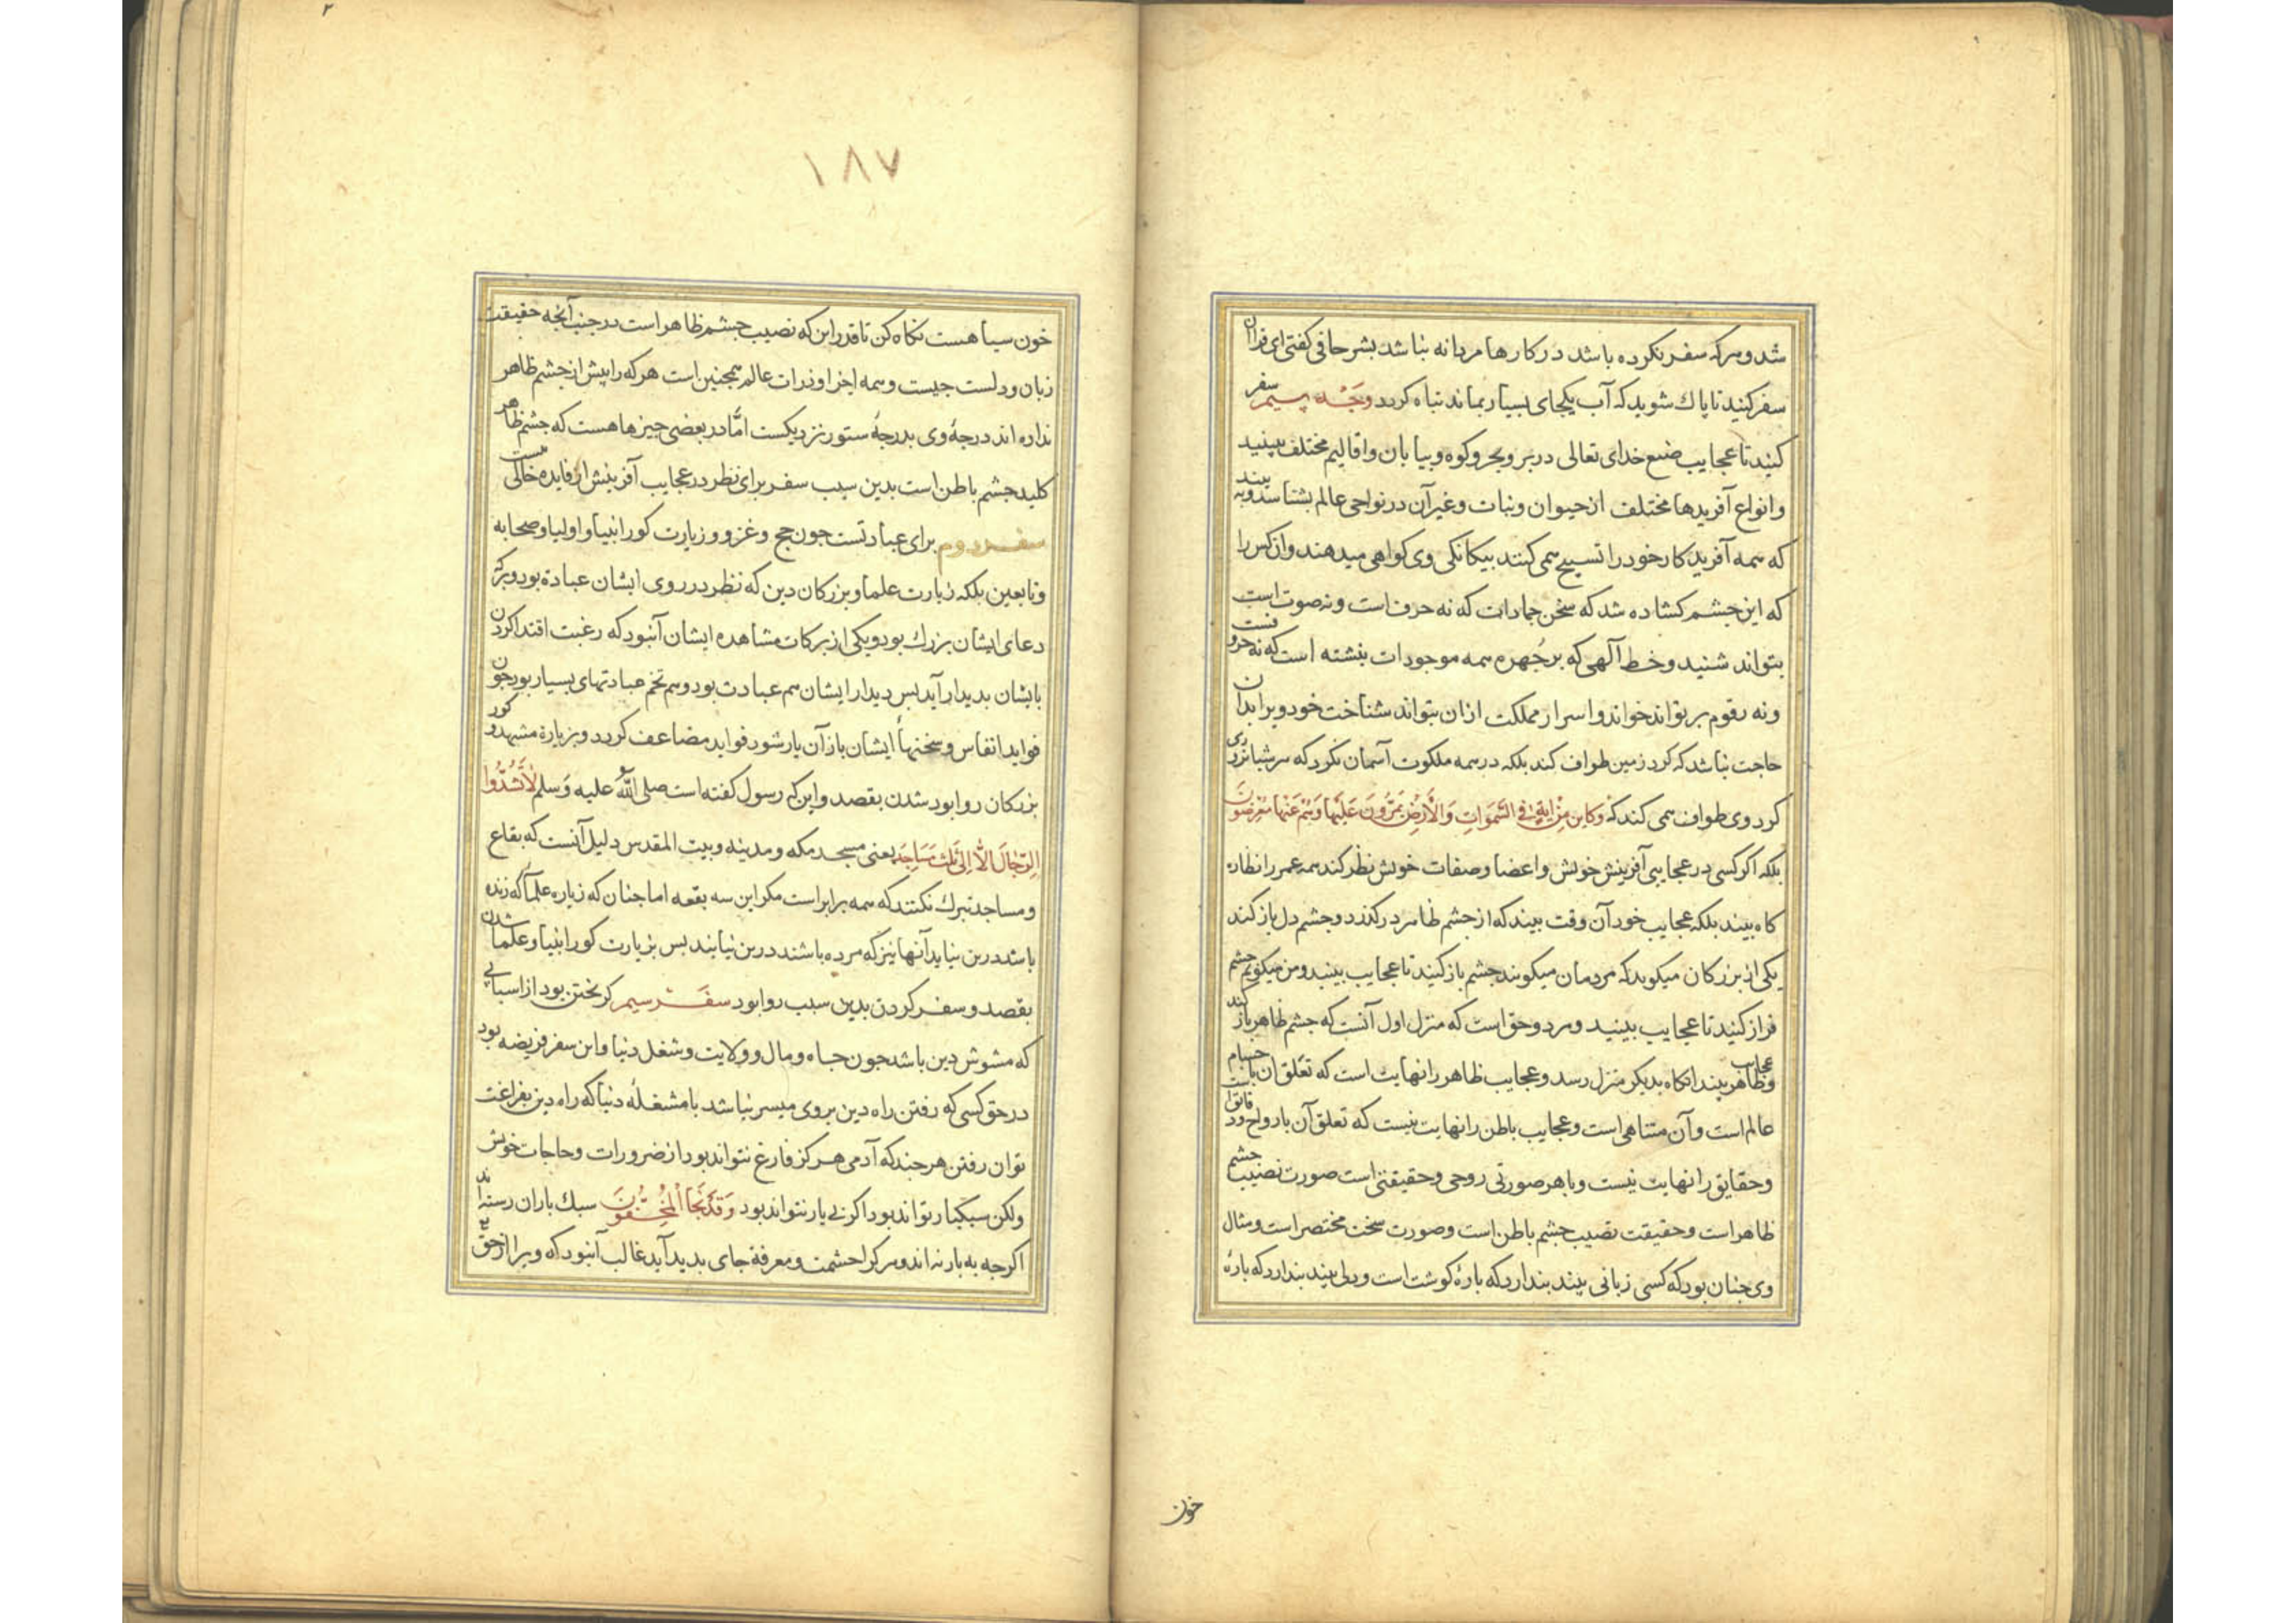 شد و هرکه سفر نکرده باشد در کارها مردانه نباشد بشر حافی کفتی ای قرآن
سفر کنید تا پاك شوید که آب یکجای بسیار بماند تباه کردد وجه سیم سفر
کنید تا عجایب صنع خدای تعالی در بر و بحر و کوه و بیابان و اقالیم مختلف ببینید
و انواع آفریدها مختلف از حیوان و نبات و غیر آن در نواحی عالم بشناسد و به بیند
که همه آفریدکار خود را تسبیح همی کنند بیکانکی وی کواهی میدهند و آن کس را
که این جشم کشاده شد که سخن جمادات که نه حرف است و نه صوت است
بتواند شنید و خط آلهی که بر جهره همه موجودات بنشته است که نه حروفست
و نه رقوم بر تواند خواند و اسرار مملکت ازان بتواند شناخت خود ویرا بدان
حاجت نباشد که کرد زمین طواف کند بلکه در همه ملکوت آسمان نکرد که هر شبانروزی
کرد وی طواف همی کند که وکاین من ایة فی السموات والارض یمرون علیها وهم عنها معرضون
بلکه اکر کسی در عجایبی آفرینش خویش و اعضا و صفات خویش نظر کند همه عمر را نظاره
کاه بیند بلکه عجایب خود آن وقت بیند که از جشم ظاهر درکذرد و جشم دل باز کند
یکی از بزرکان میکوید که مردمان میکویند جشم باز کنید تا عجایب ببیند و من میکویم جشم
فراز کنید تا عجایب ببینید و هر دو حق است که منزل اول آنست که جشم ظاهر باز کند
و عجایب ظاهر بیند انکاه بدیکر منزل رسد و عجایب ظاهر را نهایت است که تعلق ان باجسام
عالم است و آن متناهی است و عجایب باطن را نهایت نیست که تعلق آن بارواح و
و حقایق را نهایت نیست و با هر صورتی روحی و حقیقتی است صورت نصیب جشم
ظاهر است و حقیقت نصیب جشم باطن است و صورت سخت مختصر است و مثال
وی جنان بود که کسی زبانی بیند بندارد که بارۀ کوشت است و دلی بیند بندارد که بارۀ
خون
۱۸۷
خون سیاهست نکاه کن تا قدر این که نصیب جشم ظاهر است در جنب آنجه حقیقت
زبان و دلست جیست و همه اجزا و ذرات عالم همجنین است هر که را بیش از جشم ظاهر
نداده اند درجۀ وی بدرجۀ ستور نزدیکست امّا در بعضی جیزها هست که جشم ظاهر
کلید جشم باطن است بدین سبب سفر برای نظر در عجایب آفرینش از فایده خالی نیست
سفر دوم برای عبادتست جون حج و غزو و زیارت کور انبیا و اولیا و صحابه
و تابعین بلکه زیارت علما و بزرکان دین که نظر در روی ایشان عبادة بود و برکة
دعای ایشان بزرك بود و یکی از برکات مشاهده ایشان آنبود که رغبت اقتدا کردن
بایشان بدیدار آید بس دیدار ایشان هم عبادت بود و هم تخم عبادتهای بسیار بود جون
فواید انفاس و سخنهأ ایشان باز آن یار شود فواید مضاعف کردد و بزیارة مشهد و کور
بزرکان روا بود شدن بقصد و این که رسول کفته است صلی الله علیه وسلم لا تشدوا
الرجال الا الی ثلث مساجد یعنی مسجد مکه و مدینه و بیت المقدس دلیل آنست که بقاع
و مساجد تبرك نکنند که همه برابر است مکر این سه بقعه اما جنان که زیاره علما که زنده
باشد درین نیاید آنها نیز که مرده باشند درین نیایند بس بزیارت کور انبیا و علما شدن
بقصد و سفر کردن بدین سبب روا بود سفر سیم کریختن بود از اسبابی
که مشوش دین باشد جون جاه و مال و ولایت و شغل دنیا و این سفر فریضه بود
در حق کسی که رفتن راه دین بر وی میسر نباشد با مشغلۀ دنیا که راه دین بفراغت
توان رفتن هر جند که آدمی هرکز فارغ نتواند بود از ضرورات و حاجات خویش
ولکن سبکبار تواند بود اکر بی بار نتواند بود وقد نجا المخفون سبك باران رسته اند
اکرجه به بار نه اند و هر کرا حشمت و معرفة جای بدید آید غالب آنبود که ویرا از حق